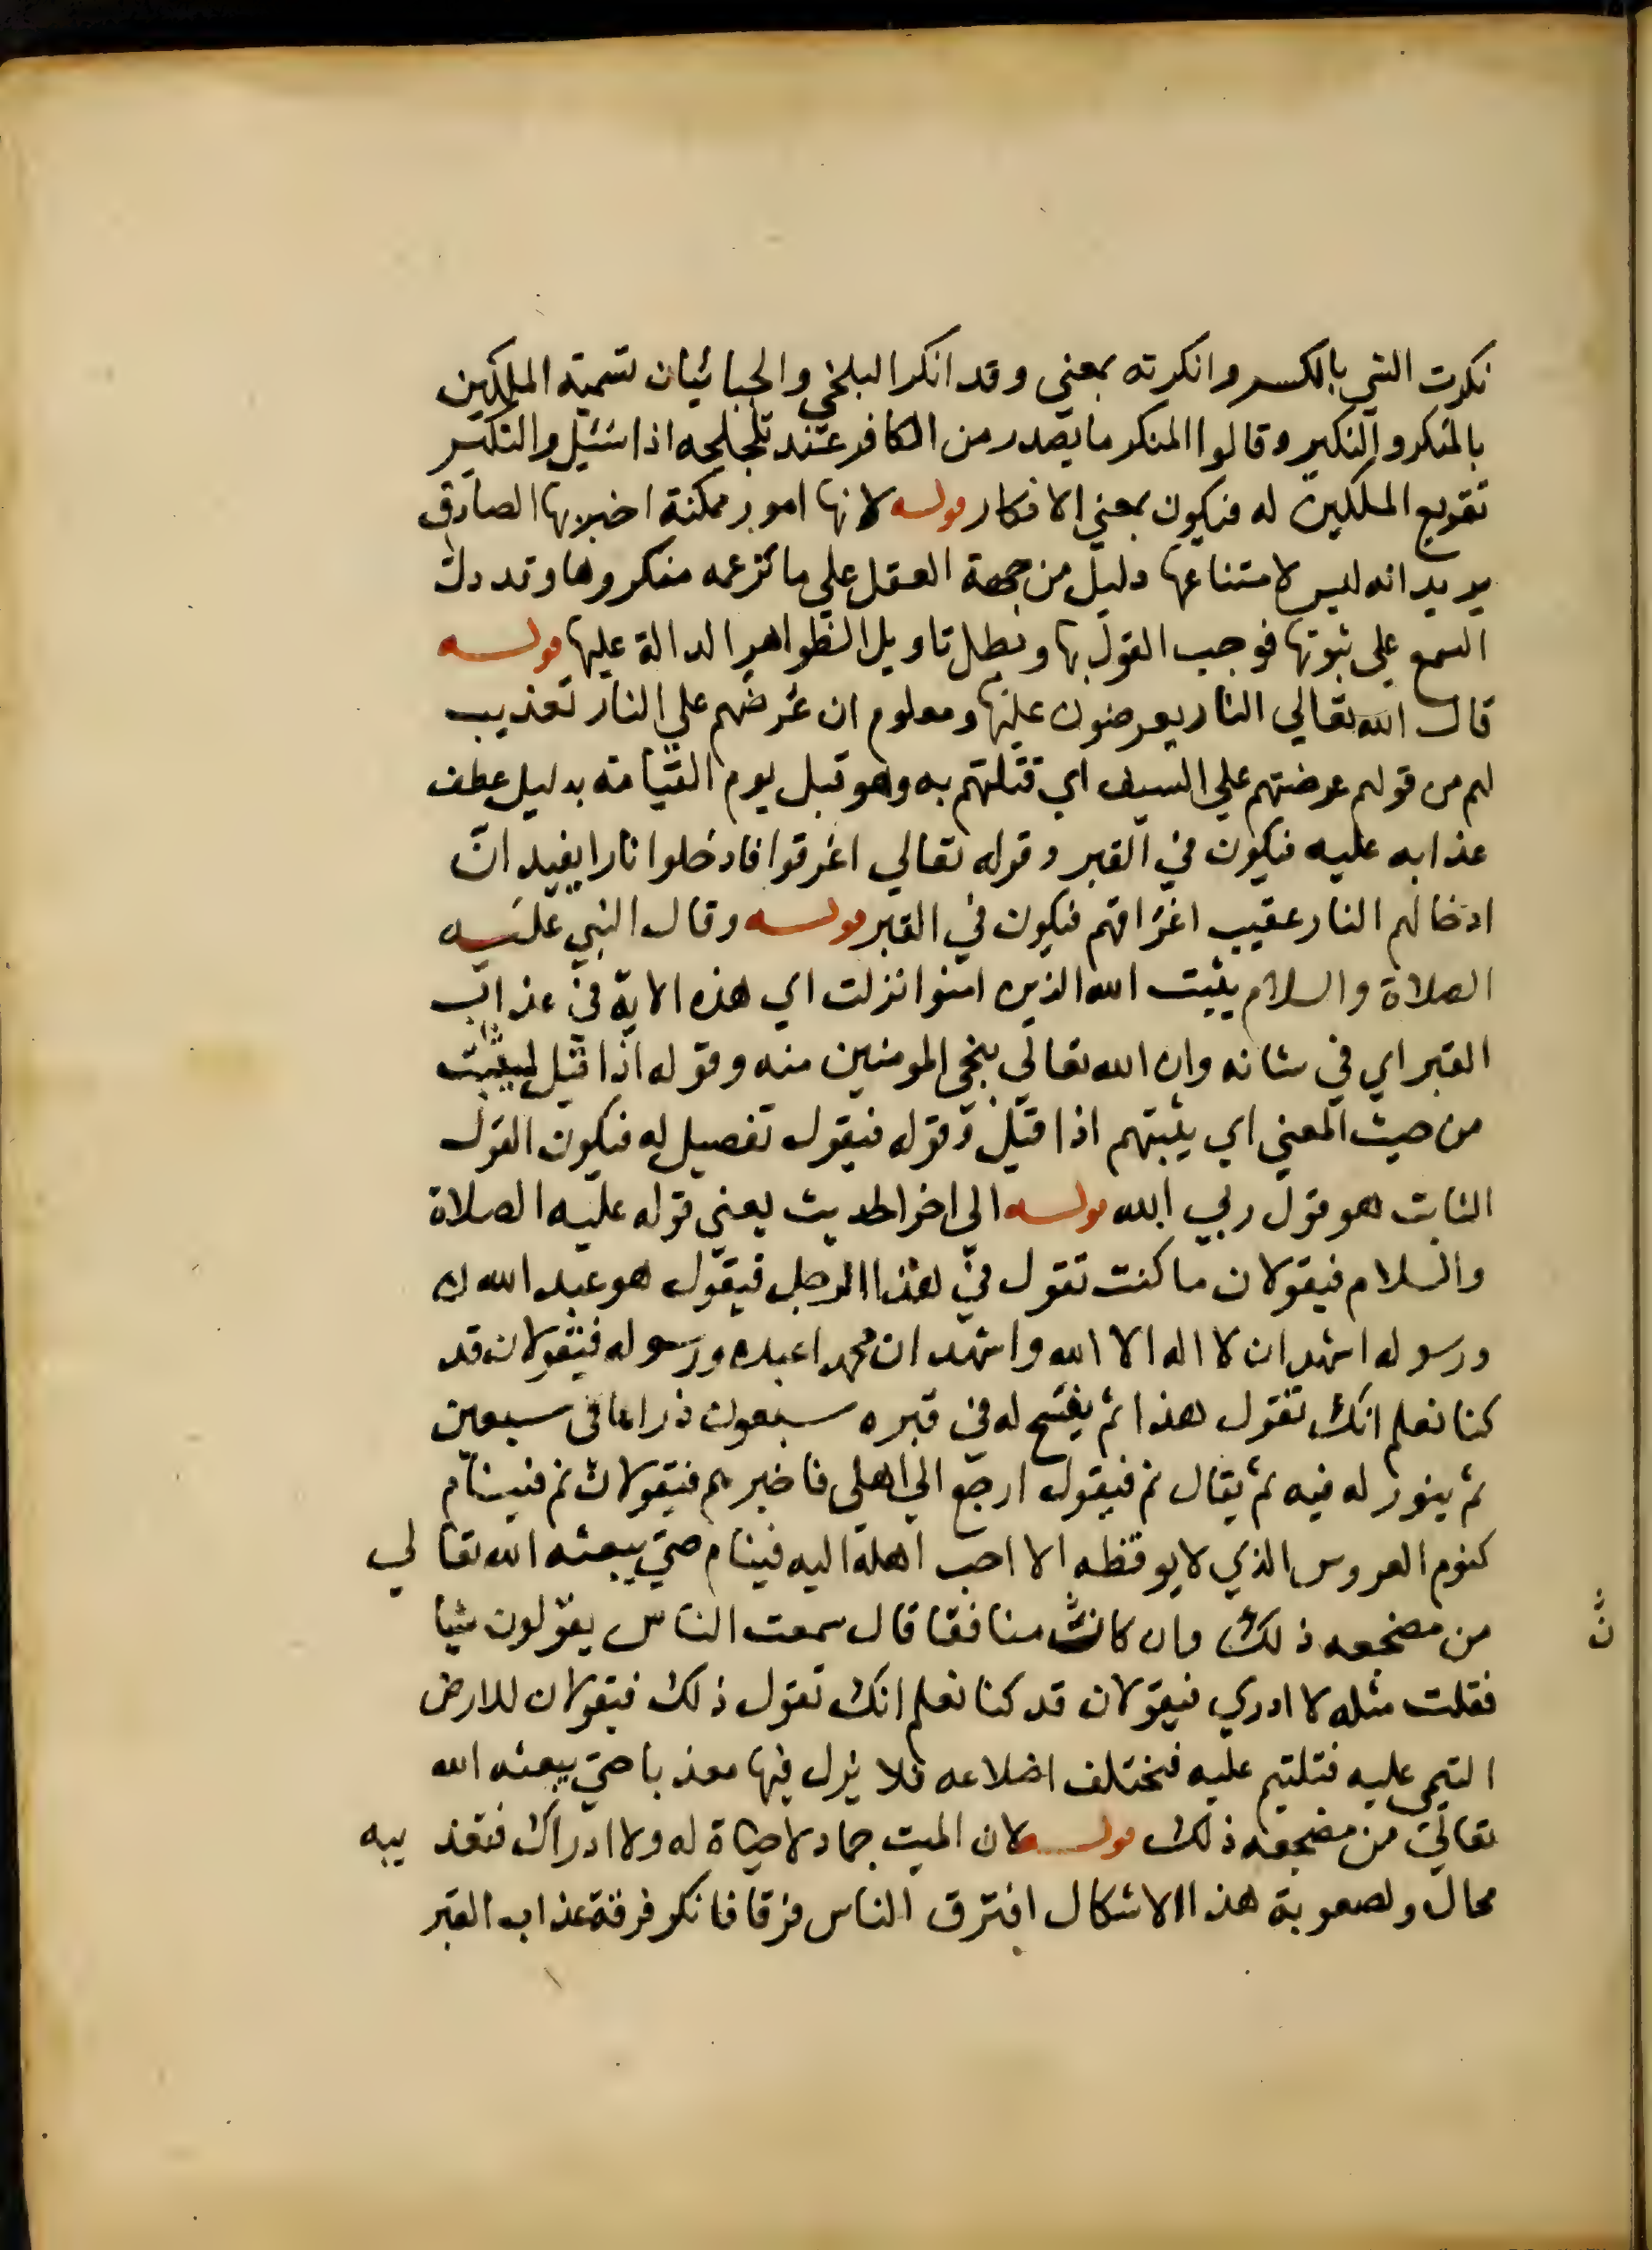 نكرت الشي بالكسر وانكرته بمعني وقد انكر البلخي والجبائيان تسمية الملكين
بالمنكر والنكير وقالوا المنكر ما يصدر من الكافر عند تلجلجه اذا سئيل والنكير
تقريع الملكين له فيكون بمعني الانكار قوله لانها امور ممكنة اخبر بها الصادق
يريد انه ليس لامتناعها دليل من جهة العقل علي ما تزعمه منكروها وقد دل
السمع علي ثبوتها فوجب القول بها وبطل تاويل الظواهر الدالة عليها قوله
قال الله تعالي النار يعرضون عليها ومعلوم ان عرضهم علي النار تعذيب
لهم من قولهم عرضتهم علي السيف اي قتلتهم به وهو قبل يوم القيامة بدليل عطف
عذابه عليه فيكون في القبر وقوله تعالي اغرقوا فادخلوا نارا يفيد ان
ادخالهم النار عقيب اغراقهم فيكون في القبر قوله وقال النبي عليه
الصلاة والسلام يثبت الله الذين امنوا نزلت اي هذه الاية في عذاب
القبر اي في شانه وان الله تعالي ينجي المومنين منه وقوله اذا قيل ليثبت
من حيث المعني اي يثبتهم اذا قيل وقوله فيقول تفصيل له فيكون القول
الثابت هو قول ربي الله قوله الي اخر الحديث يعني قوله عليه الصلاة
والسلام فيقولان ما كنت تقول في هذا الرجل فيقول هو عبد الله
ورسوله اشهد ان لا اله الا الله واشهد ان محمدا عبده ورسوله فيقولان قد
كنا نعلم انك تقول هذا ثم يفتح له في قبره سبعون ذراعا في سبعين
ثم ينور له فيه ثم يقال نم فيقول ارجع الي اهلي فاخبرهم فيقولان نم فينام
كنوم العروس الذي لا يوقظه الا احب اهله اليه فينام حتي يبعثه الله تعالي
من مضجعه ذلك وان كان منافقا قال سمعت الناس يقولون شيا
فقلت مثله لا ادري فيقولان قد كنا نعلم انك تقول ذلك فيقولان للارض
التيمي عليه فتلتيم عليه فتختلف اضلاعه فلا يزل فيها معذبا حتي يبعثه الله
تعالي من مضجعه ذلك قوله لان الميت جماد لا حياة له ولا ادراك فتعذيبه
محال ولصعوبة هذا الاشكال افترق الناس فرقا فانكر فرقة عذاب القبر